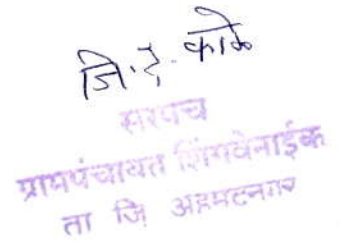 जि. दे. काळे
सरपंच
ग्रामपंचायत शिंगवेनाईक
ता जि अहमदनगर